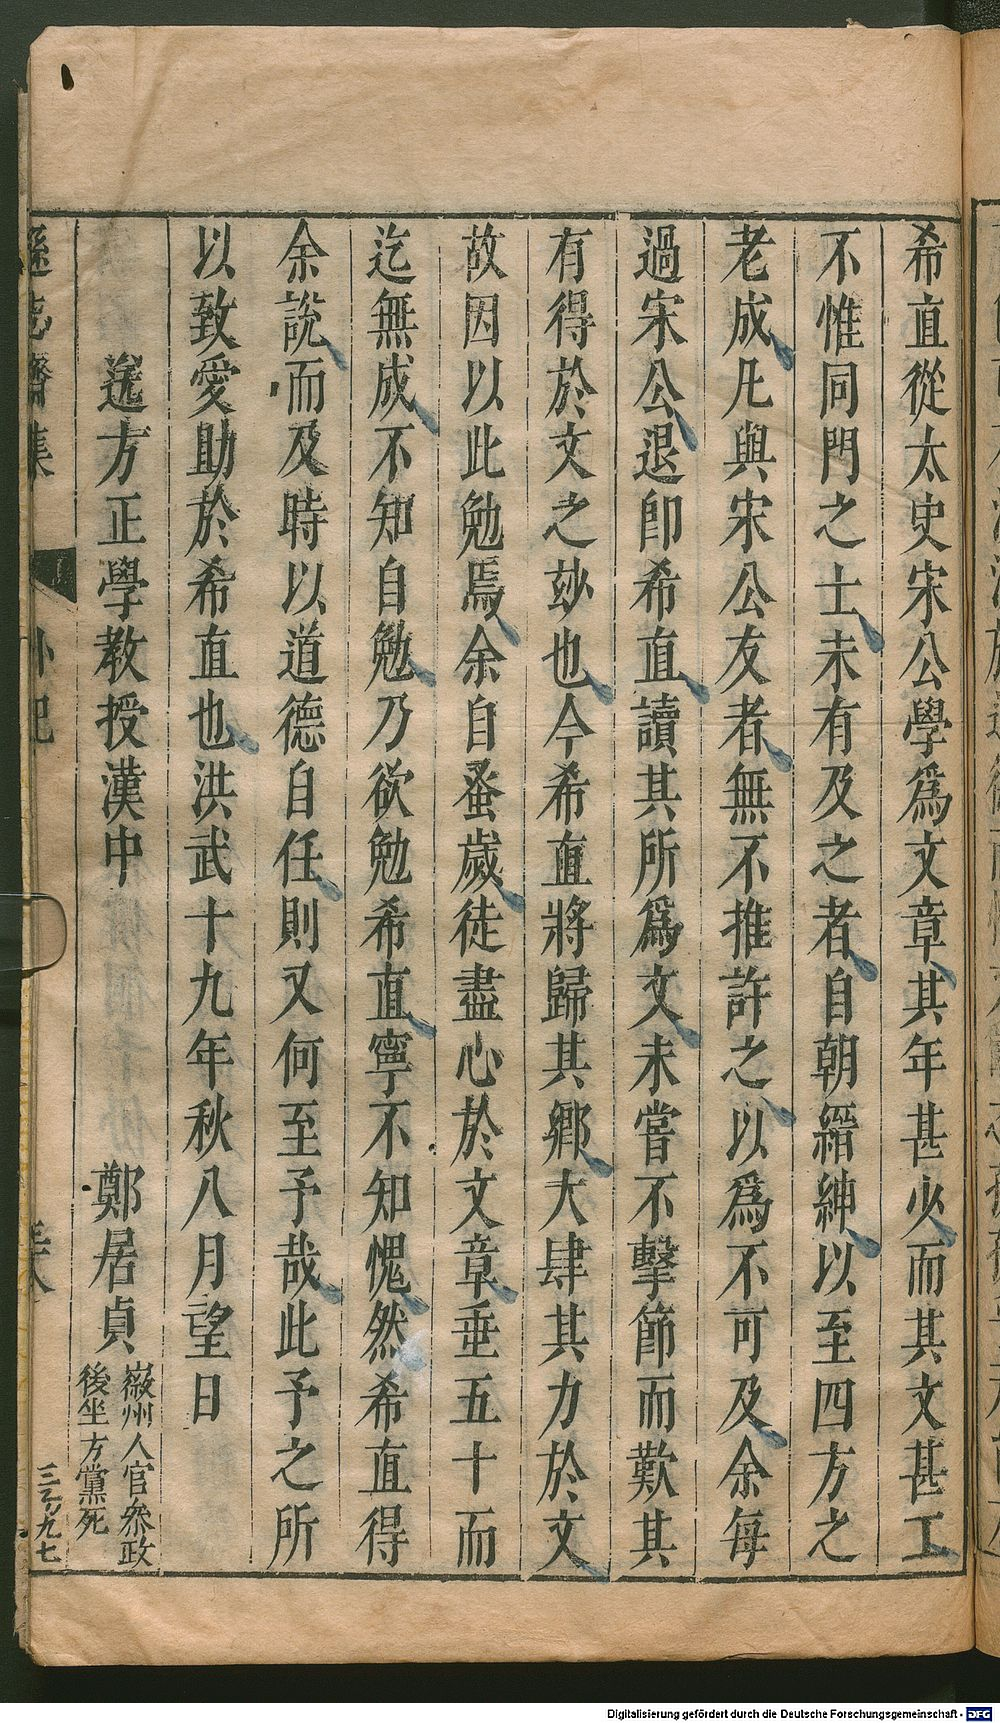 希直從太史宋公學爲文章其年甚少而其文甚工
不惟同門之士未有及之者自朝縉紳以至四方之
老成凡與宋公友者無不推許之以爲不可及余每
過宋公退卽希直讀其所爲文未嘗不擊節而歎其
有得於文之玅也今希直將歸其鄉大肆其力於文
故因以此勉焉余自蚤歲徒盡心於文章垂五十而
迄無成不知自勉乃欲勉希直寧不知愧然希直得
余說而及時以道德自任則又何至予哉此予之所
以致愛助於希直也洪武十九年秋八月望日
送方正學教授漢中 鄭居貞
徽州人官叅政
後坐方黨死
遜志齋集 外紀
Digitalisierung gefördert durch die Deutsche Forschungsgemeinschaft - DFG